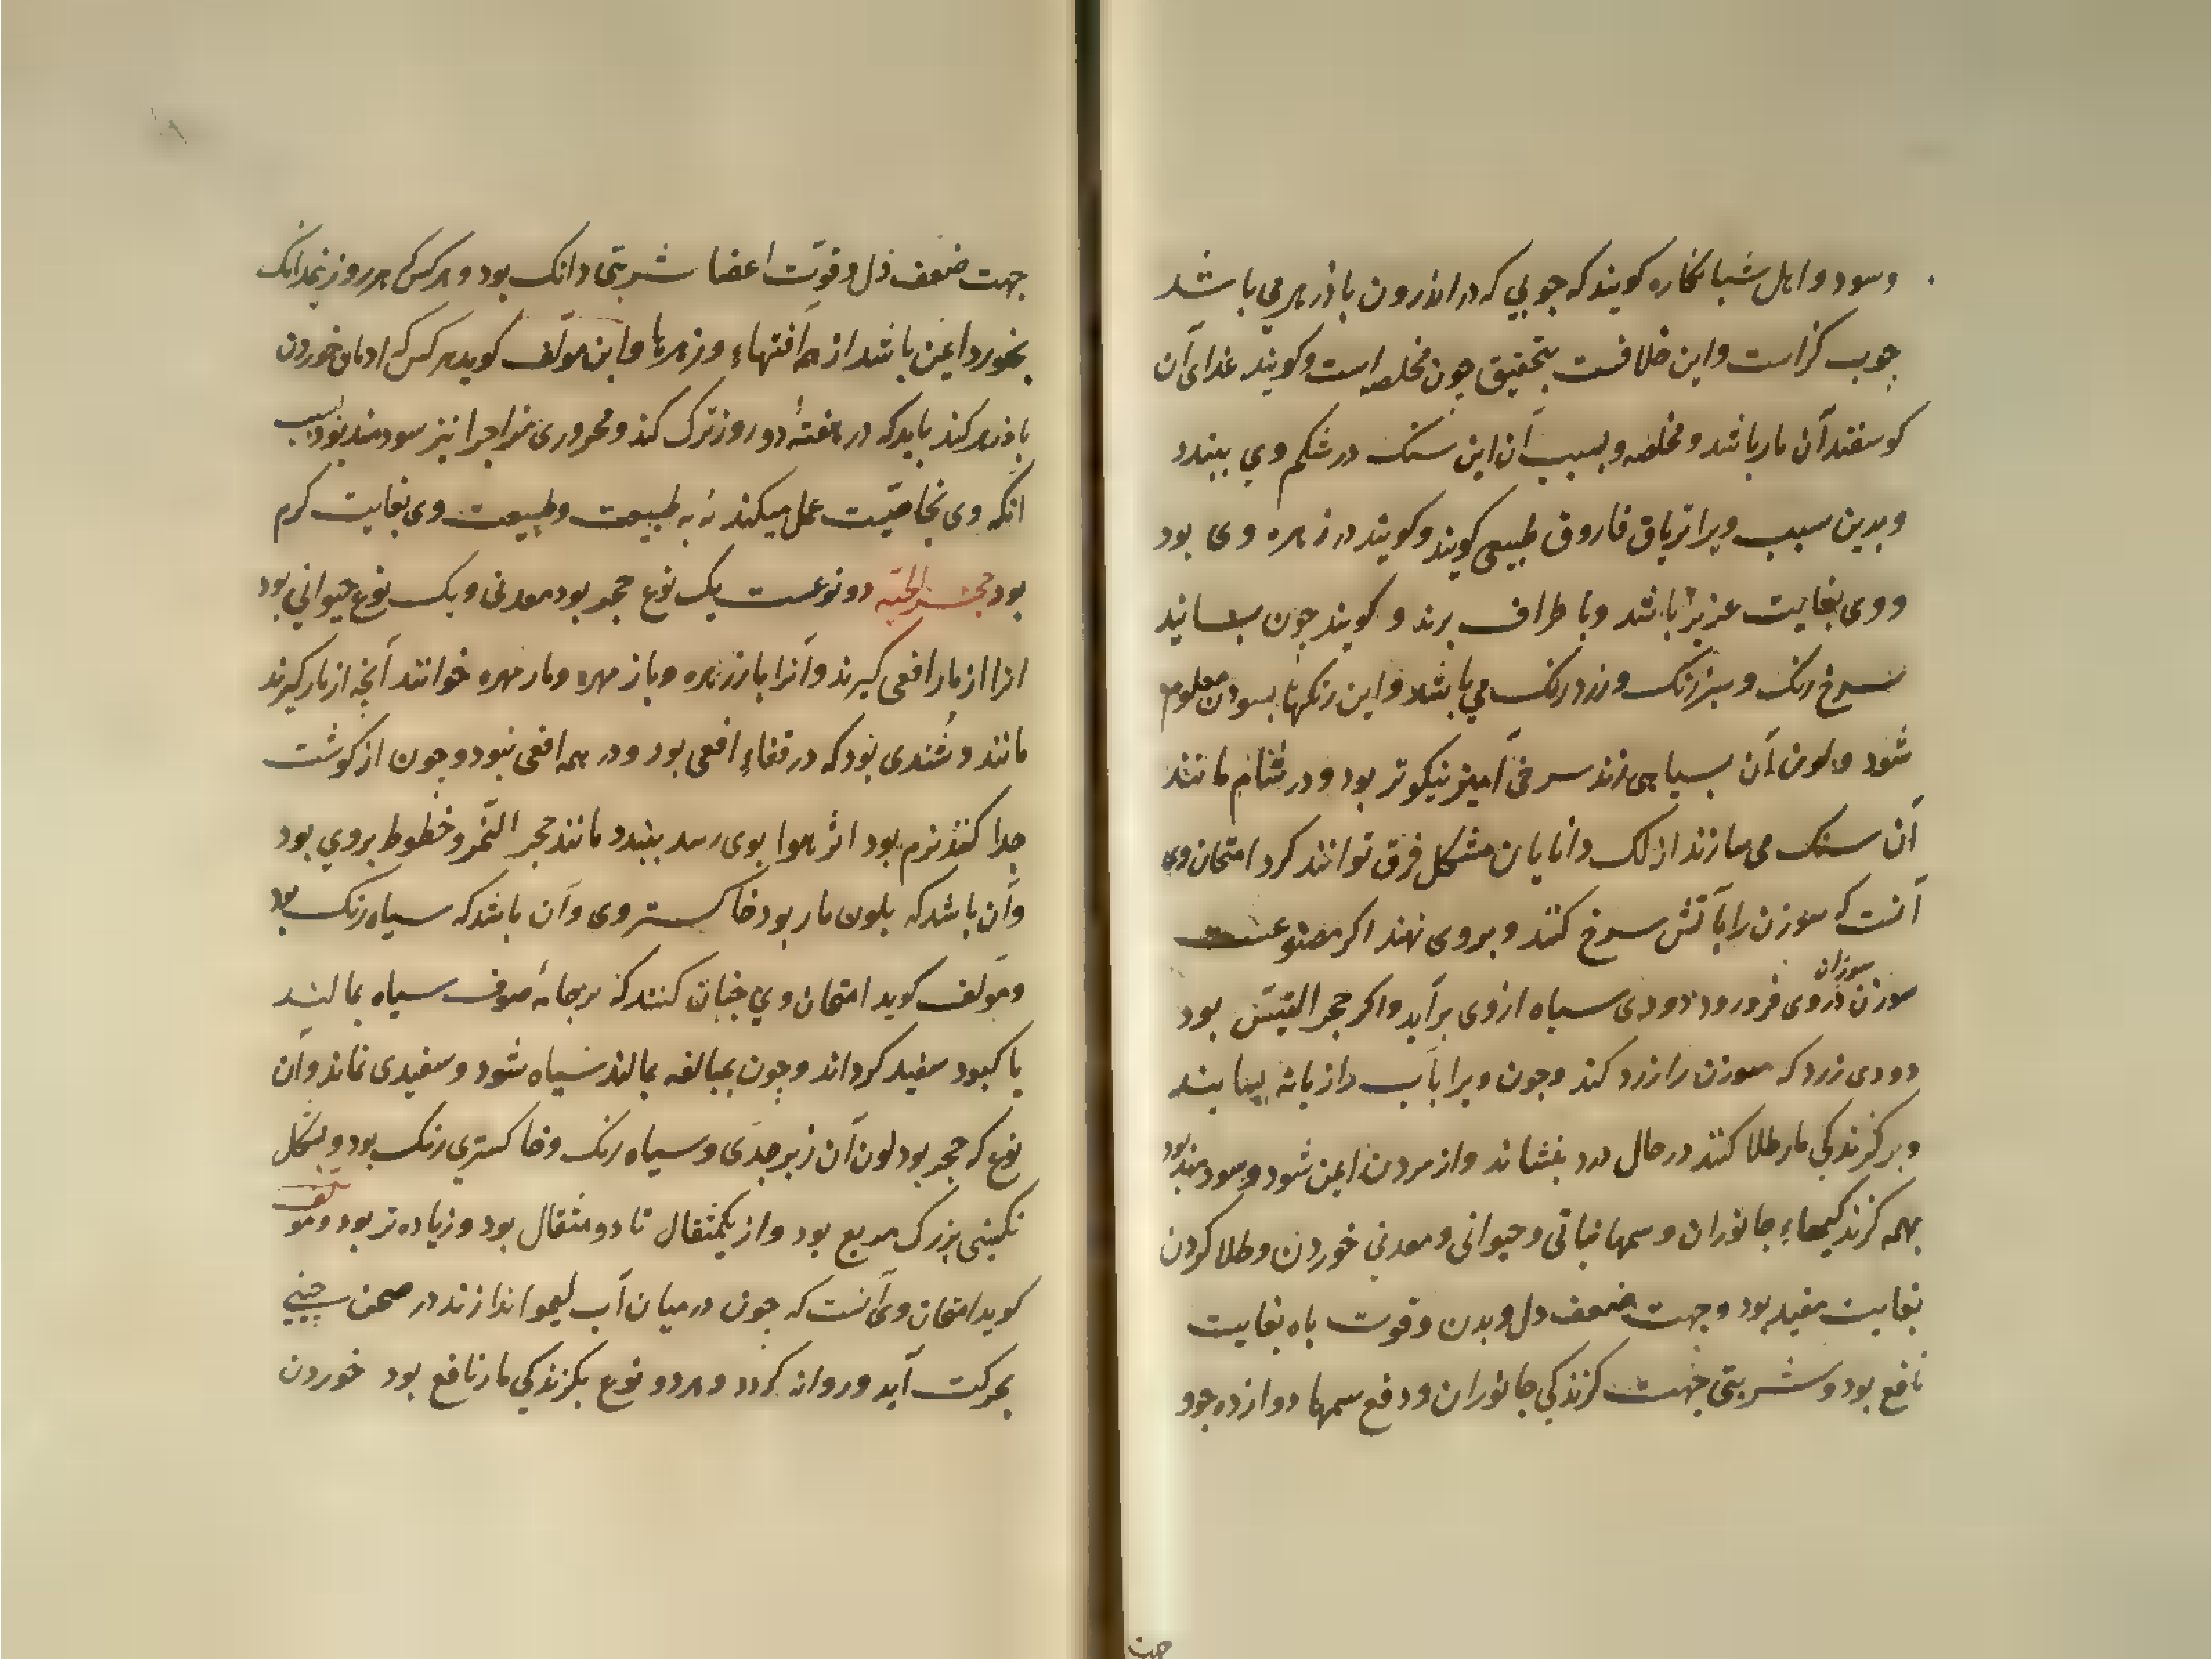 وسود و اهل شبانکاره کویند که جوبی که در اندرون باذزهر می باشد
جوب کز است و این خلافست بتحقیق چون مخلصه است و کویند غذای آن
کوسفند آن مار باشد و مخلصه و بسبب آن این سنک در شکم وی ببندد
و بدین سبب ویرا تریاق فاروق طبیعی کویند و کویند در زهره وی بود
و وی بغایت عزیز باشد و باطراف برند و کویند جون بسایند
سرخ رنک و سبز رنک و زرد رنک می باشد و این رنکها بسودن معلوم
شود و لون آن بسیاهی زند سرخی آمیز نیکوتر بود و در شام مانند
آن سنک می سازند از لک دانایان مشکل فرق توانند کرد امتحان وی
آنست که سوزن را بآتش سرخ کنند و بروی نهند اکر مصنوعست
سوزان
سوزن در وی فرو رود دودی سیاه از وی برآید و اکر حجر التیس بود
دودی زرد که سوزن را زرد کند و جون ویرا بآب رازیانه بسایند
و بر کزندکی مار طلا کنند در حال درد بنشاند و از مردن ایمن شود و سودمند بود
بهمه کزندکیهاء جانوران و سمها نباتی و حیوانی و معدنی خوردن و طلا کردن
بغایت مفید بود و جهت ضعف دل و بدن و قوت باه بغایت
نافع بود و شربتی جهت کزندکی جانوران و دفع سمها دوازده جو و
جهت
جهت ضعف دل و قوّت اعضا شربتی دانک بود و هرکس که هر روز نیمدانک
بخورد ایمن باشد از همه آفتهاء و زهرها و ابن مولّف کوید هرکس که ادمان خوردن
باذزهر کند باید که در هفتهٔ دو روز ترک کند و محروری مزاجرا نیز سودمند بود بسبب
انکه وی بخاصیّت عمل میکند نه به طبیعت و طبیعت وی بغایت کرم
بود حجر الحیّه دو نوعست یک نوع حجر بود معدنی و یک نوع حیوانی بود
انرا از مار افعی کیرند و آنرا بازرهره و باز مهره و مار مهره خوانند آنچه از مار کیرند
مانند و شندی بود که در قفاء افعی بود و در همه افعی نبود و جون از کوشت
جدا کنند نرم بود اثر هوا بوی رسد ببندد مانند حجر التّمر و خطوط بروی بود
و آن باشد که بلون مار بود خاکستروی و آن باشد که سیاه رنک بود
و مولّف کوید امتحان وی جنان کنند که بر جامهٔ صوف سیاه بمالند
یا کبود سفید کرداند و جون بمبالغه بمالند سیاه شود و سفیدی نماند و آن
نوع که حجر بود لون آن زبرجدی و سیاه رنک و خاکستری رنک بود و بشکل
نکینی بزرک مربع بود و از یکمثقال تا دو مثقال بود و زیاده تر بود و مولف
کوید امتحان وی آنست که جون در میان آب لیمو اندازند در صحن چینی
بحرکت آید و روانه کردد و هر دو نوع بکزندکی مار نافع بود خوردن